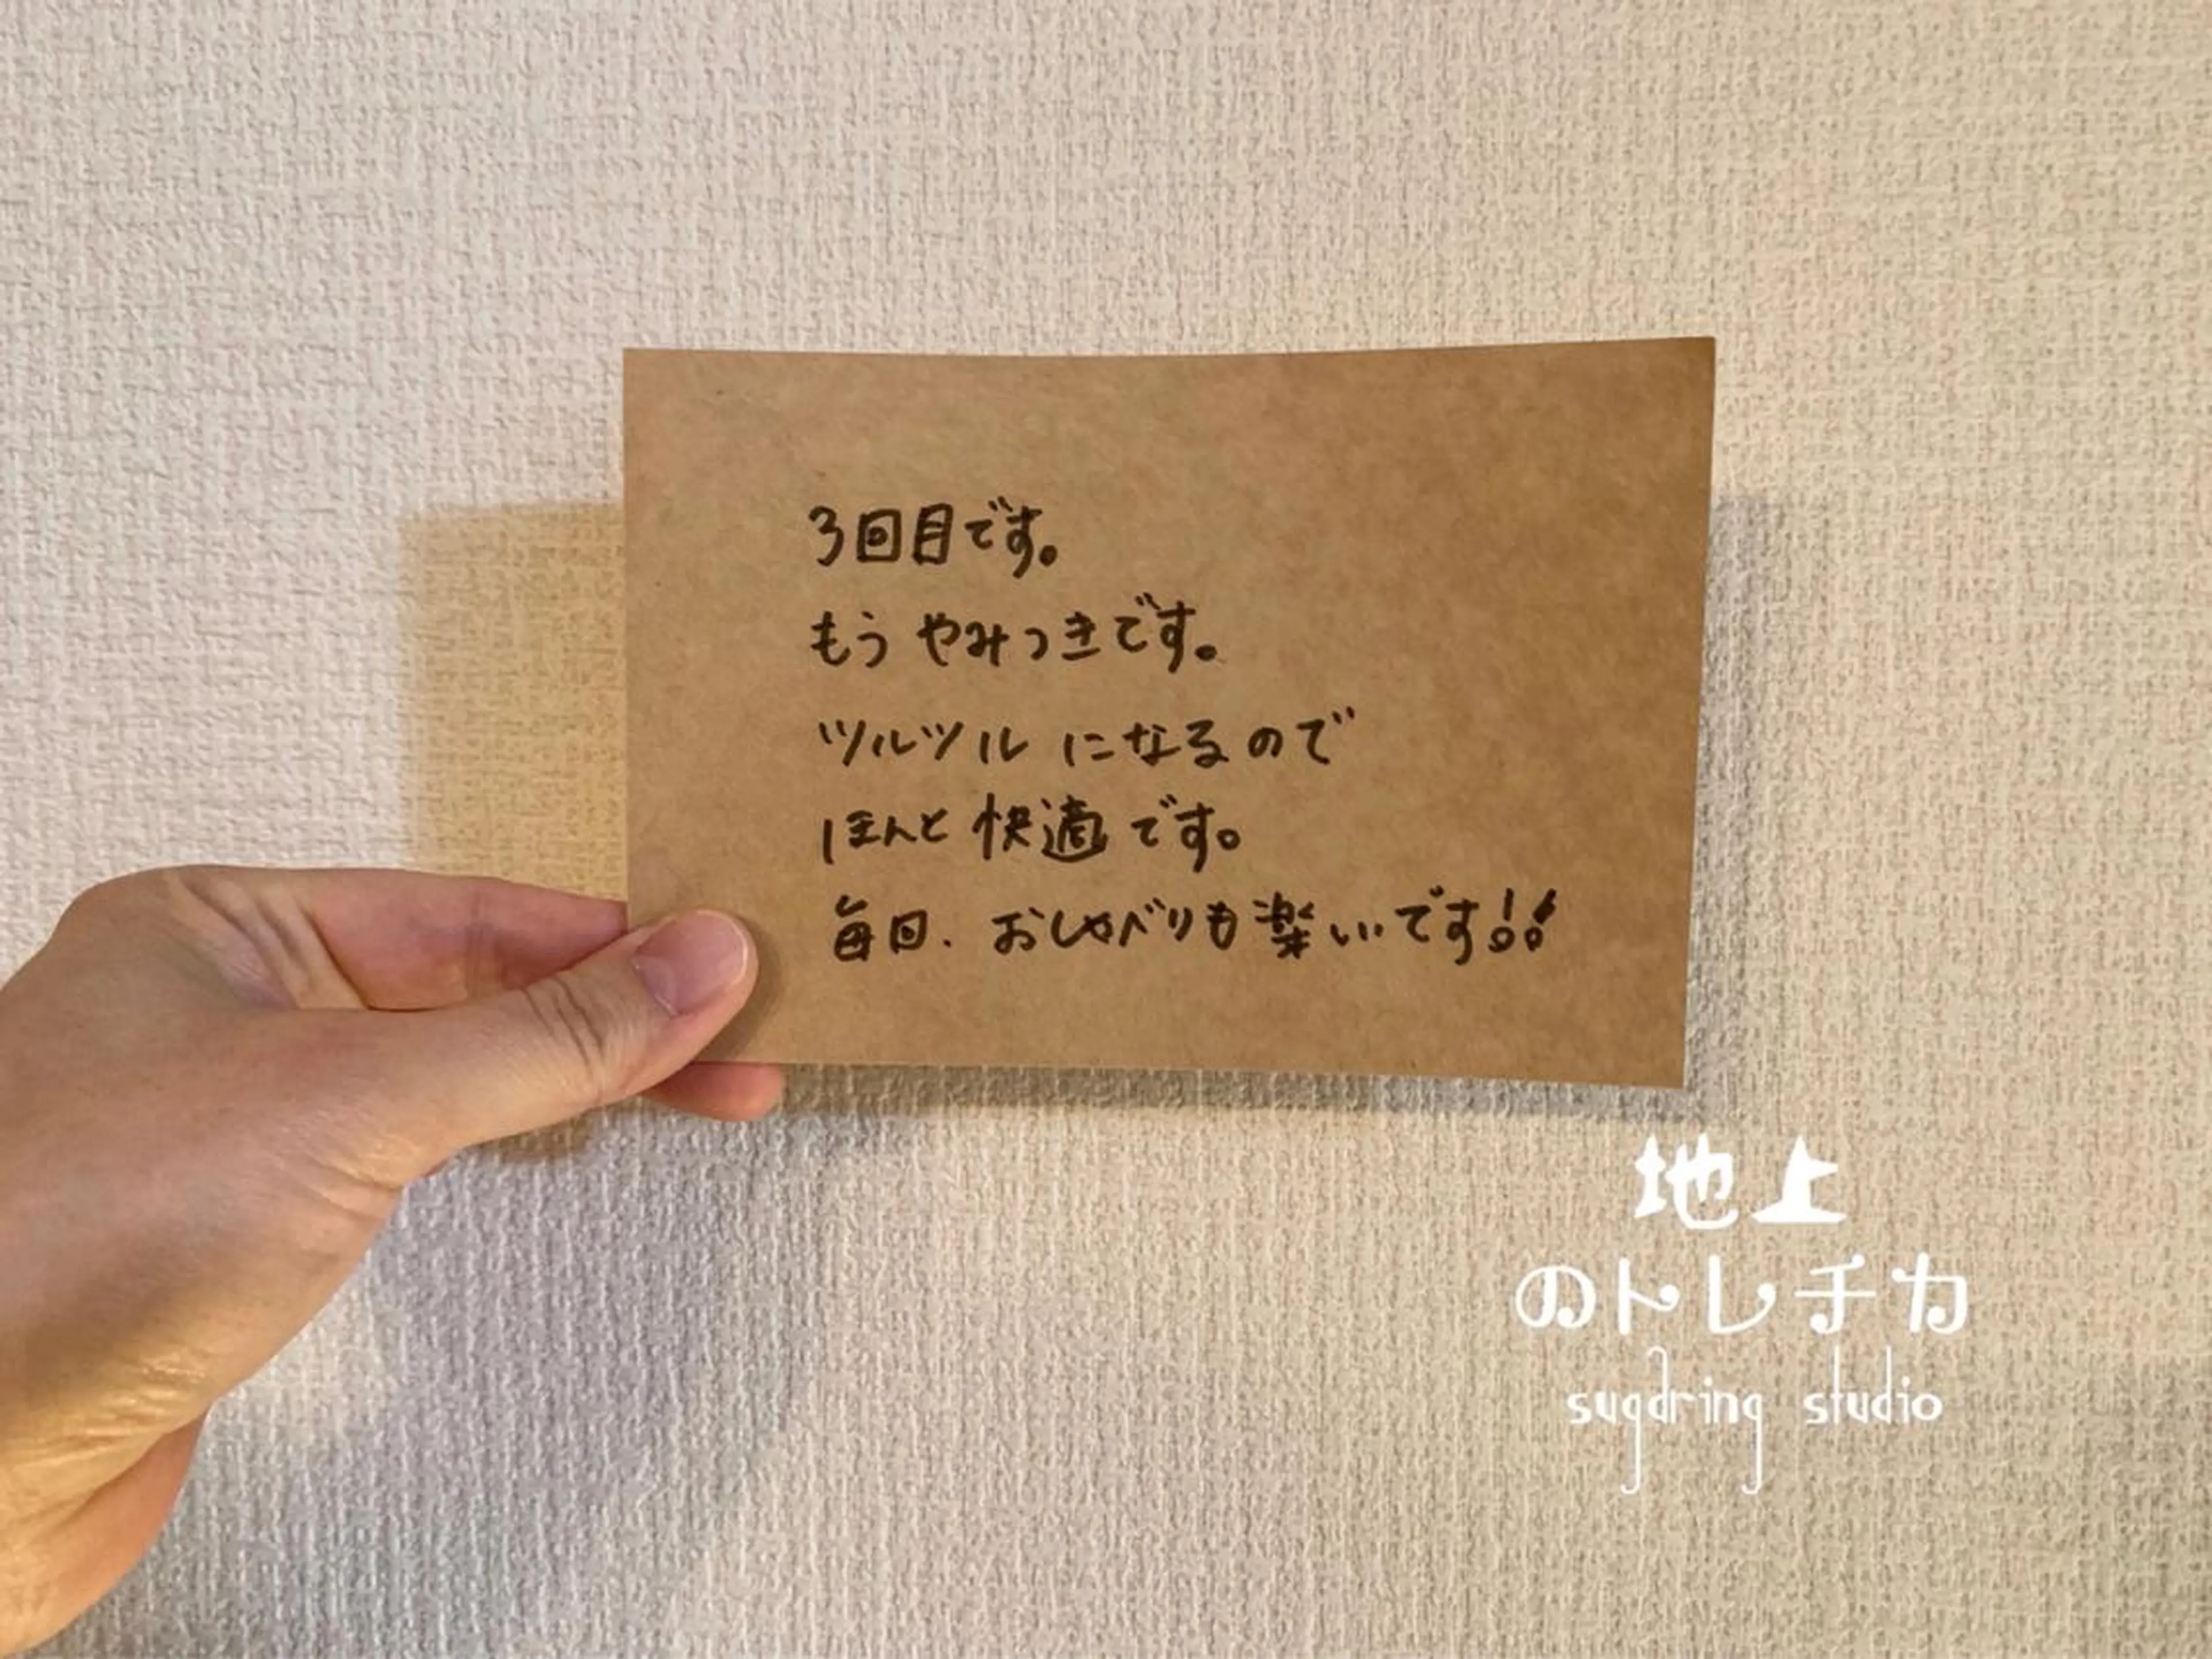 3回目です。
もう やみつきです。
ツルツル になるので
ほんと 快適 です。
毎回、おしゃべりも楽しいです!!
地上
のトレチカ
sugaring studio